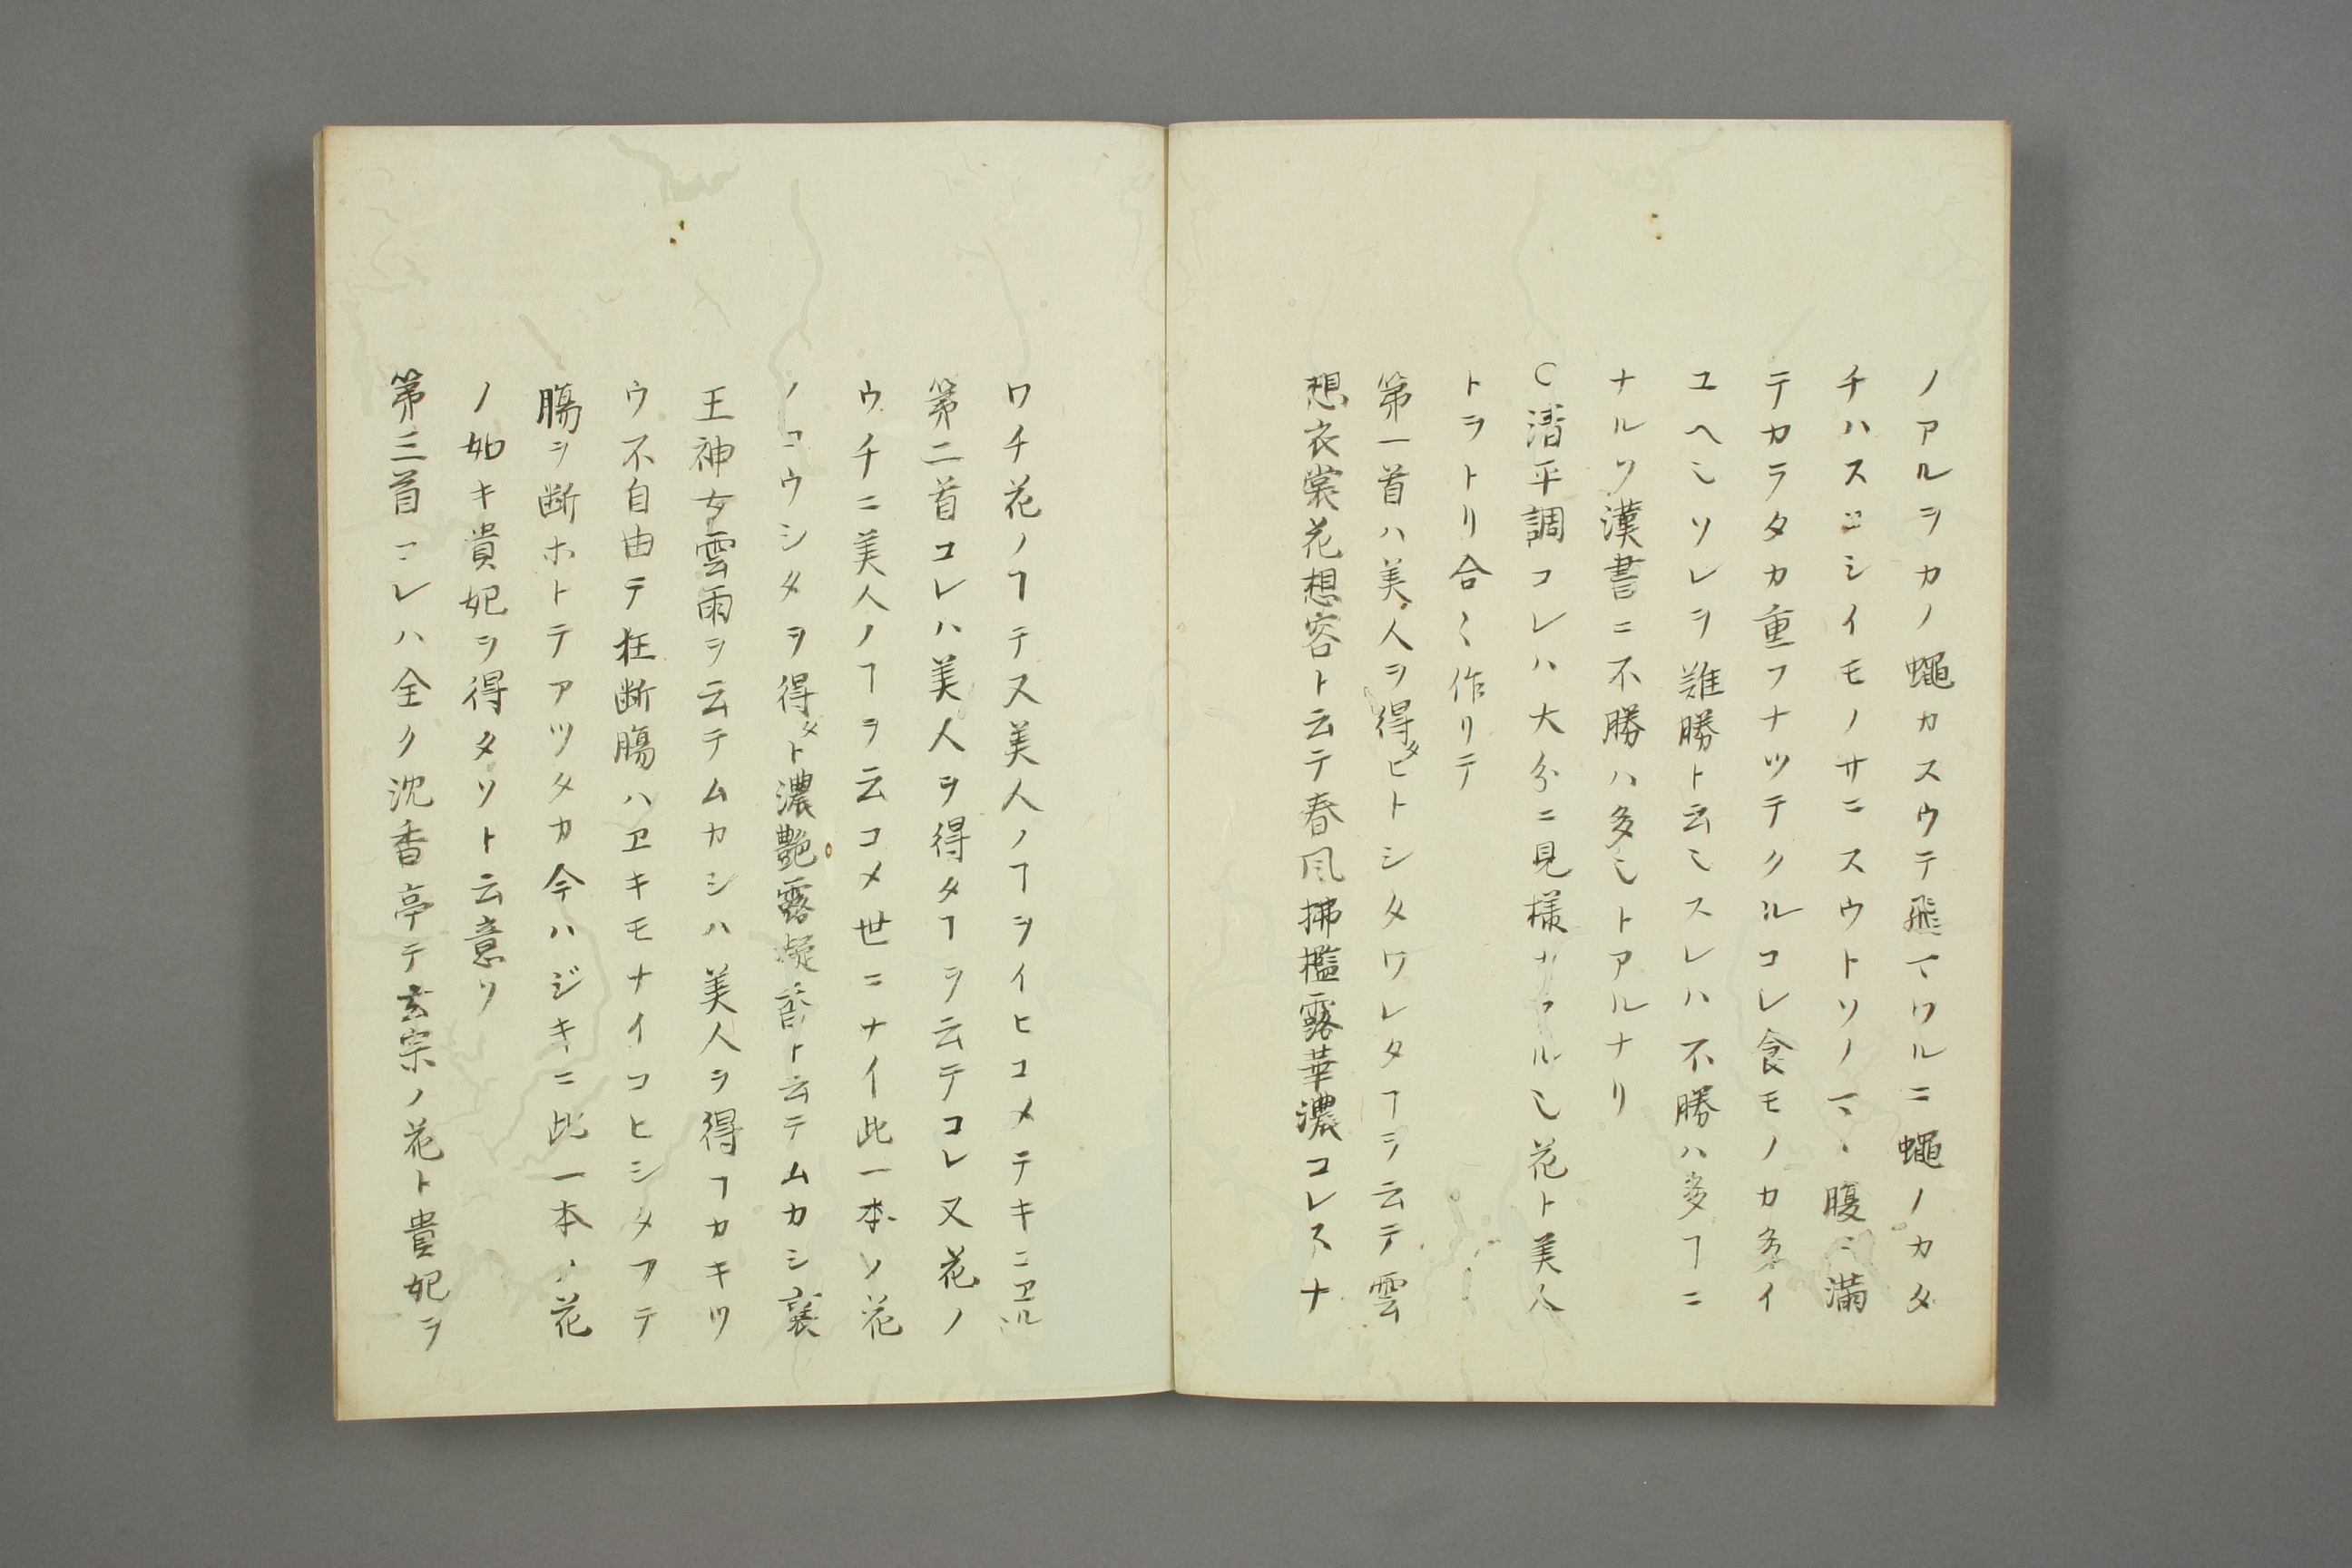 ノアルヲカノ蠅カスウテ飛マワルニ蠅ノカタ
チハスコシイモノサニスウトソノマヽ腹ニ満
テカラタカ重フナツテクルコレ食モノカ多イ
ユヘ也ソレヲ難勝ト云也スレハ不勝ハ多ヿニ
ナルソ漢書ニ不勝ハ多也トアルナリ
○清平調コレハ大分ニ見様カアル也花ト美人
トヲトリ合〻作リテ
第一首ハ美人ヲ得タヒトシタワレタヿヲ云テ雲
想衣裳花想容ト云テ春風拂檻露華濃コレスナ
ワチ花ノヿテス美人ノヿヲイヒコメテキニヱル
第二首コレハ美人ヲ得タヿヲ云テコレ又花ノ
ウチニ美人ノヿヲ云コメ世ニナイ此一本ソ花
ノコウシタヲ得タト濃艶露凝香ト云テムカシ襄
王神女雲雨ヲ云テムカシハ美人ヲ得ヿカキツ
ウ不自由テ枉断膓ハヱキモナイコヒシタフテ
膓ヲ断ホトテアツタカ今ハジキニ此一本ノ花
ノ如キ貴妃ヲ得タソト云意ソ
第三首コレハ全ク沈香亭テ玄宗ノ花ト貴妃ヲ